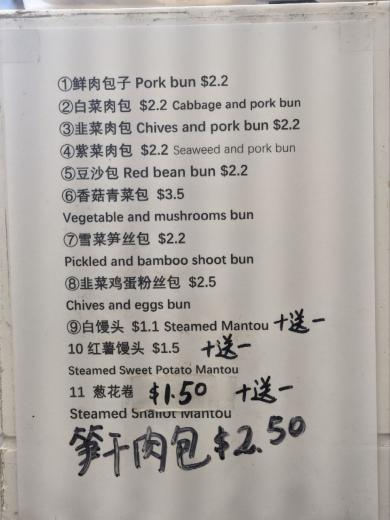 ①鲜肉包子 Pork bun $2.2
②白菜肉包 $2.2 Cabbage and pork bun
③韭菜肉包 Chives and pork bun $2.2
④紫菜肉包 $2.2 Seaweed and pork bun
⑤豆沙包 Red bean bun $2.2
⑥香菇青菜包 $3.5
Vegetable and mushrooms bun
⑦雪菜笋丝包 $2.2
Pickled and bamboo shoot bun
⑧韭菜鸡蛋粉丝包 $2.5
Chives and eggs bun
⑨白馒头 $1.1 Steamed Mantou 十送一
10 红薯馒头 $1.5 十送一
Steamed Sweet Potato Mantou
11 葱花卷 $1.50 十送一
Steamed Shallot Mantou
笋干肉包 $2.50